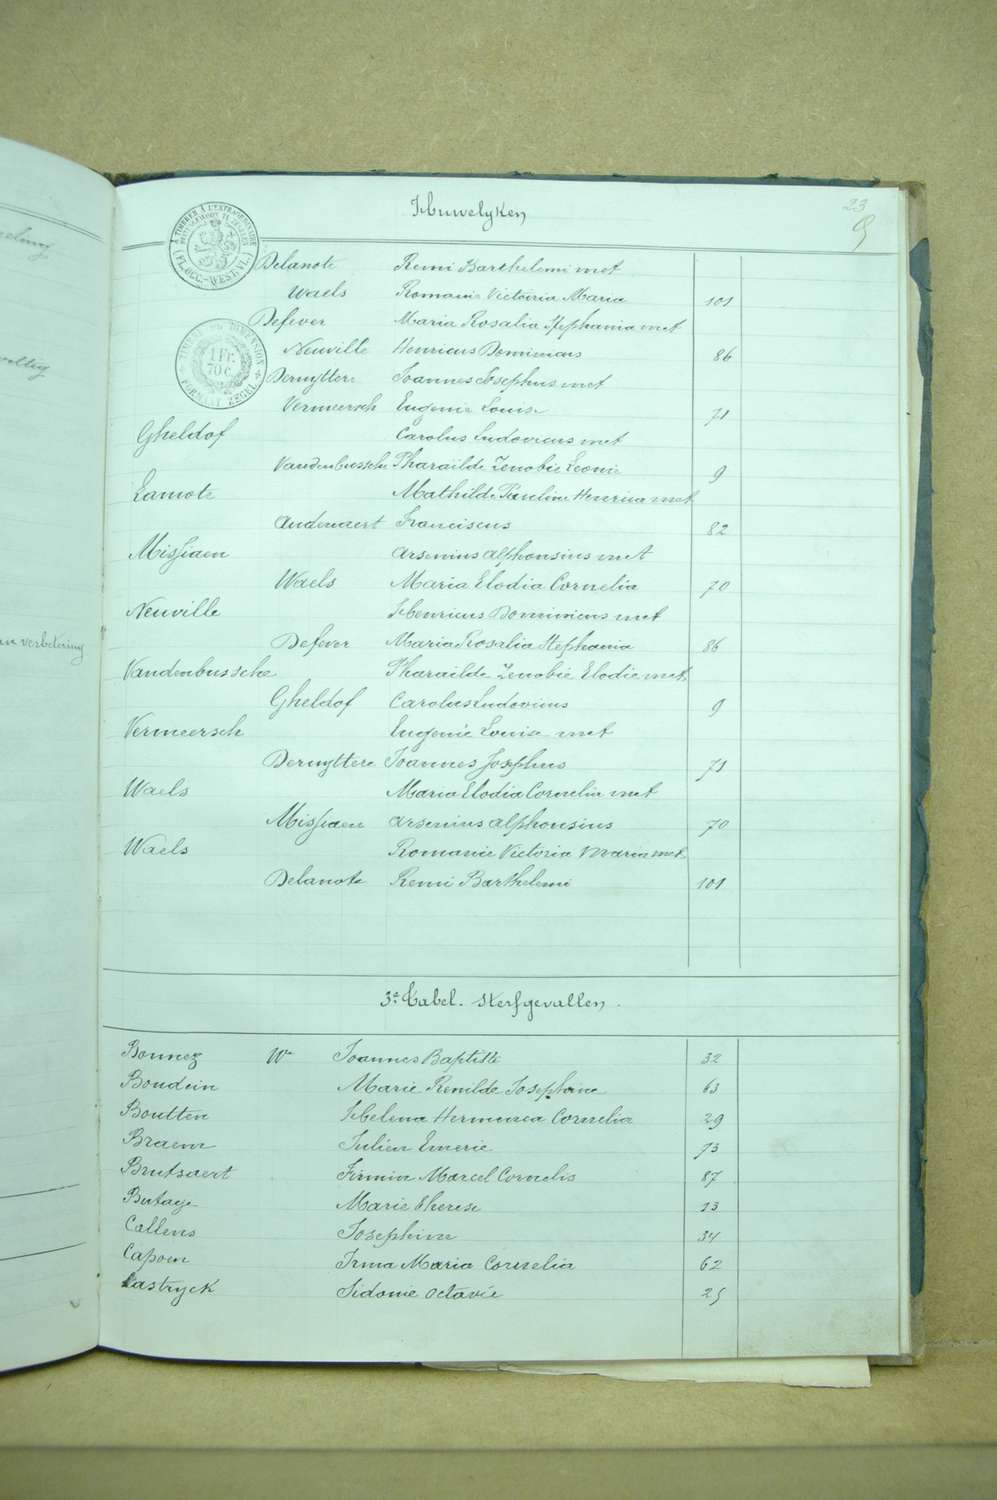 Huwelyken
23
A TIMBRER À L'EXTRAORDINAIRE
(FL. OCC. - WEST. VL.)
Delanote Remi Barthelemi met
Waels Romanie Victoria Maria 101
Defever Maria Rosalia Stephania met
Neuville Henricus Dominicus 86
TIMBRE DE DIMENSION
1 Fr. 70 c.
FORMAAT ZEGEL
Deruyttere Joannes Josephus met
Vermeersch Eugenie Louise 71
Gheldof Carolus Ludovicus met
Vandenbussche Pharaïlde Zenobie Leonie 9
Lamote Mathilde Pauline Henrica met
Audenaert Franciscus 82
Missiaen Arsenius Alphonsius met
Waels Maria Elodia Cornelia 70
Neuville Henricus Dominicus met
Defever Maria Rosalia Stephania 86
Vandenbussche Pharaïlde Zenobie Elodie met
Gheldof Carolus Ludovicus 9
Vermeersch Eugenie Louise met
Deruyttere Joannes Josephus 71
Waels Maria Elodia Cornelia met
Missiaen Arsenius Alphonsius 70
Waels Romanie Victoria Maria met
Delanote Remi Barthelemi 101
3e Tabel. Sterfgevallen.
Bonnez We Joannes Baptiste 32
Boudein Marie Renilde Josephine 63
Boutten Helena Hermenea Cornelia 29
Braem Julien Emerie 73
Brutsaert Firmin Marcel Cornelis 87
Butaye Marie Therese 13
Callens Josephine 34
Capoen Irma Maria Cornelia 62
Castryck Sidonie Octavie 25
an verbetering